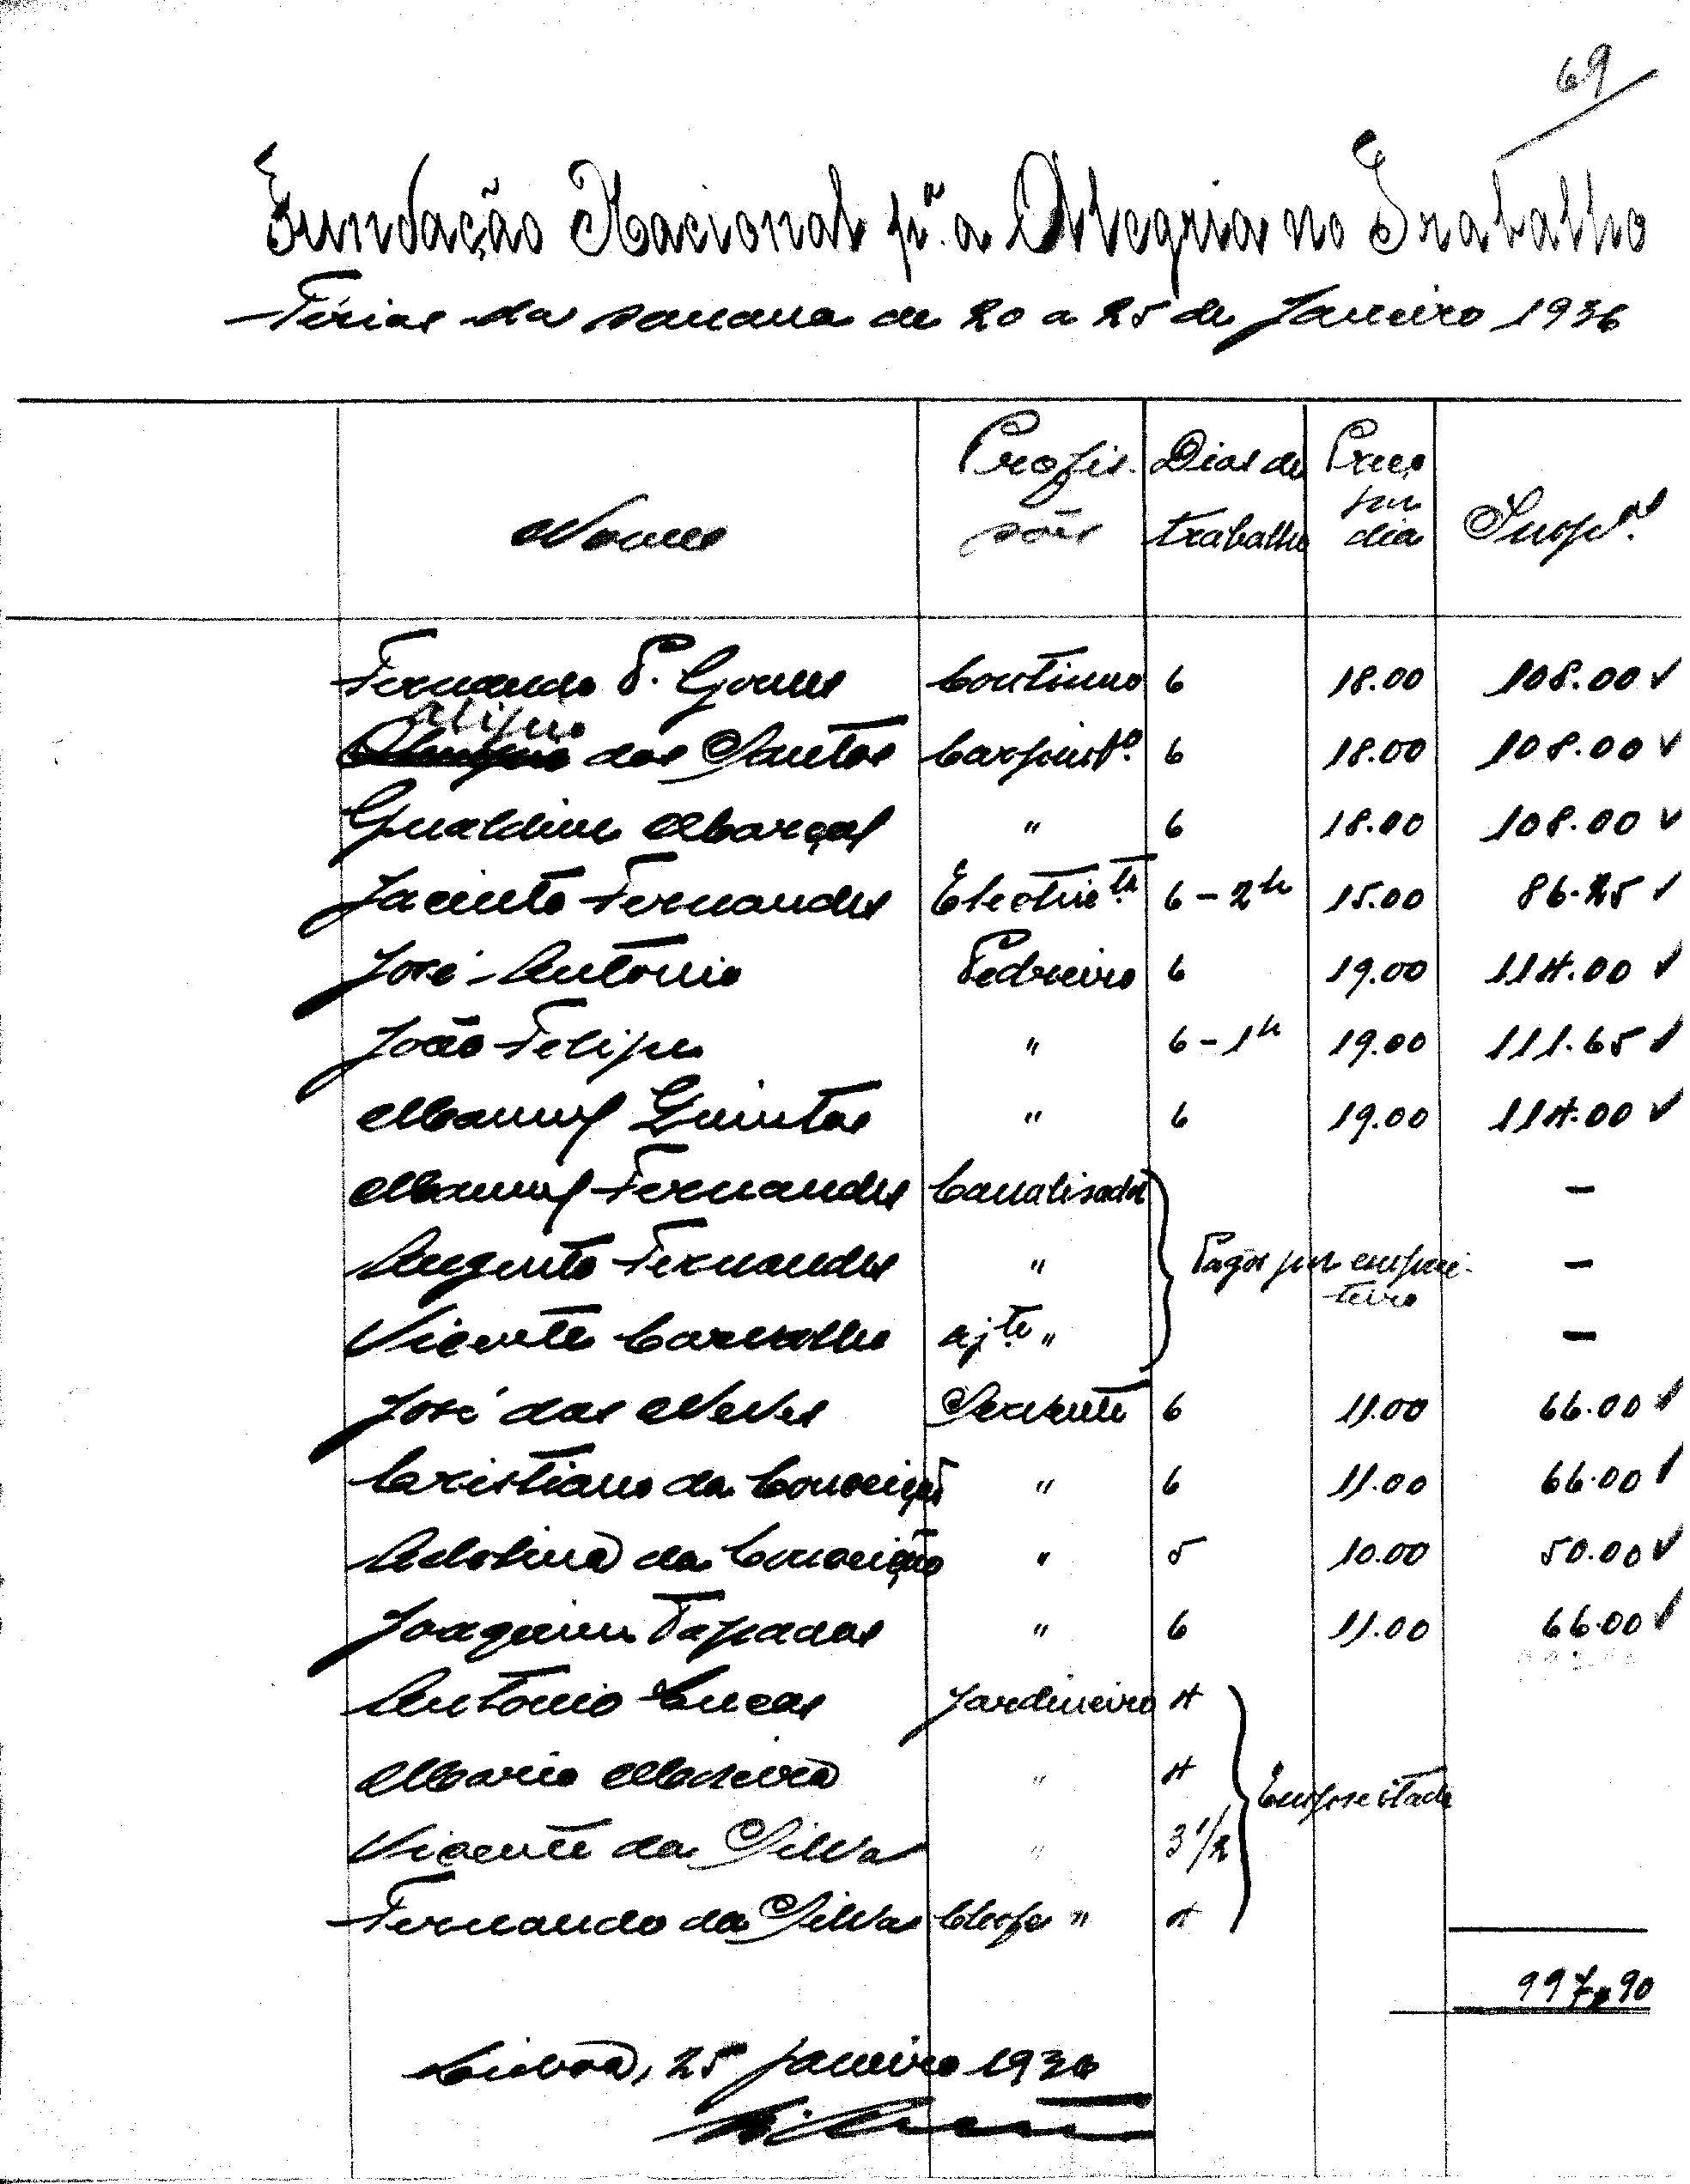 69
Fundação Nacional pª a Alegria no Trabalho
Férias da semana de 20 a 25 de Janeiro 1936
Nomes Profis- sões Dias de trabalho Preço por dia Impcas
Fernando P. Gomes Contínuo 6 18.00 108.00 ✓
Alipio
dos Santos Carpintº. 6 18.00 108.00 ✓
Gualdino Marçal " 6 18.00 108.00 ✓
Jacinto Fernandes Electricta. 6 - 2h 15.00 86.25 ✓
José Antonio Pedreiro 6 19.00 114.00 ✓
João Felipe " 6 - 1h 19.00 111.65 ✓
Manuel Quintas " 6 19.00 114.00 ✓
Manuel Fernandes Canalisador —
Augusto Fernandes " Pagos por emprei- —
teiro
Vicente Carvalho ajte. " —
José das Neves Servente 6 11.00 66.00 ✓
Cristiano da Conceição " 6 11.00 66.00 ✓
Adolina da Conceição " 5 10.00 50.00 ✓
Joaquim Tapadas " 6 11.00 66.00 ✓
Antonio Lucas Jardineiro 4
Mario Madeira " 4
Empreitada
Vicente da Silva " 3 1/2
Fernando da Silva Chefe " 4
997$90
Lisboa, 25 janeiro 1936